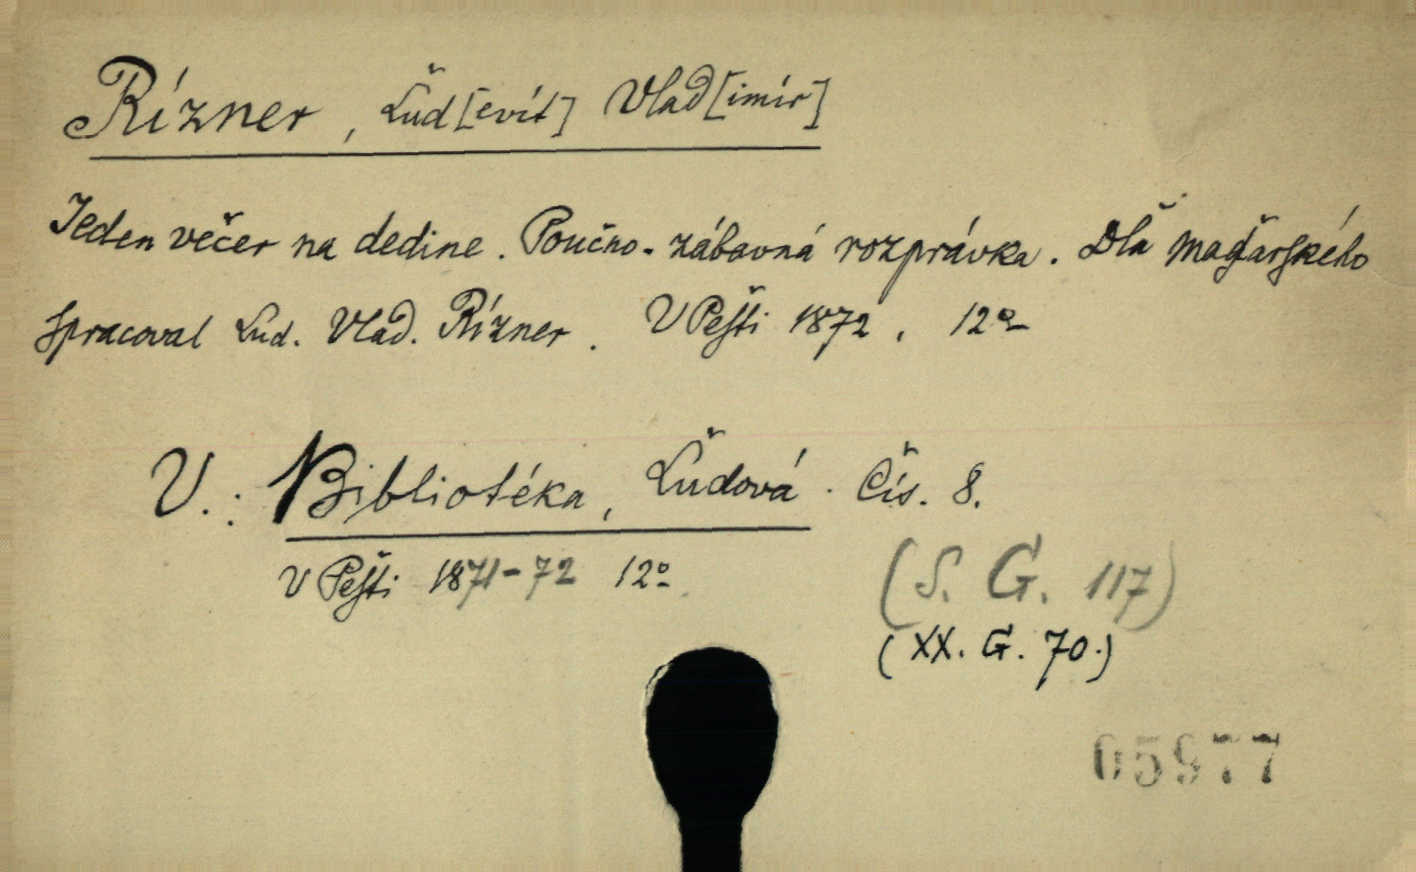 Rízner, Ľud[evít] Vlad[imír]
Jeden večer na dedine. Poučno-zábavná rozprávka. Dľa maďarského
spracoval Lud. Vlad. Rízner. V Pešti 1872. 12º
V.: Bibliotéka, Ľudová. Čís. 8.
V Pešti 1871-72 12º.
(S. G. 117)
(XX. G. 70.)
05977